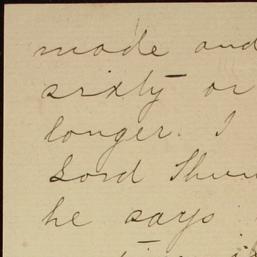 made and
sixty or
longer. I
Lord
he says